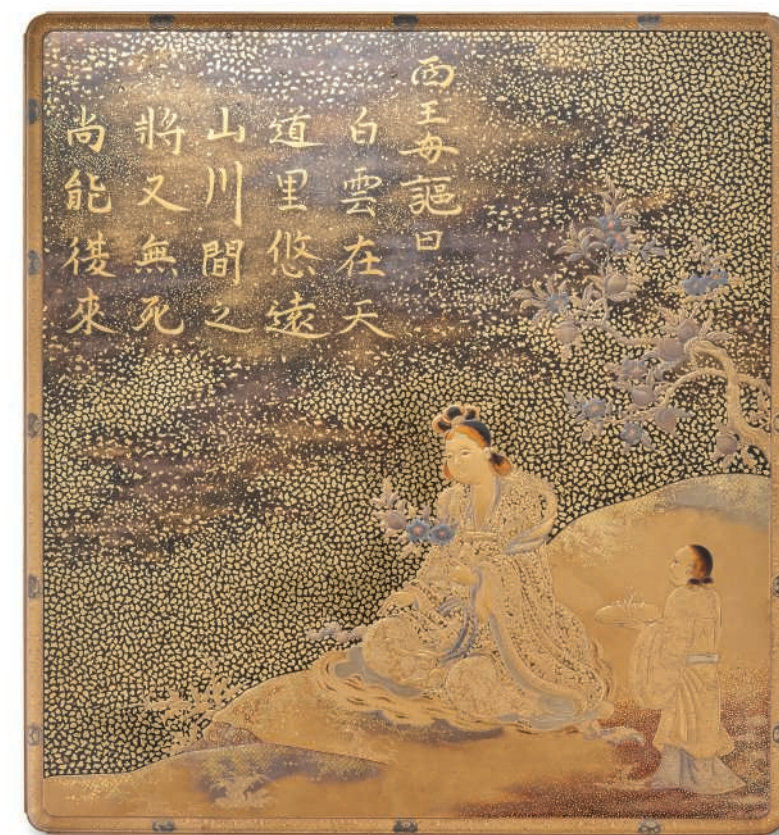 西王母謳曰
白雲在天
道里悠遠
山川間之
將又無死
尚能復來